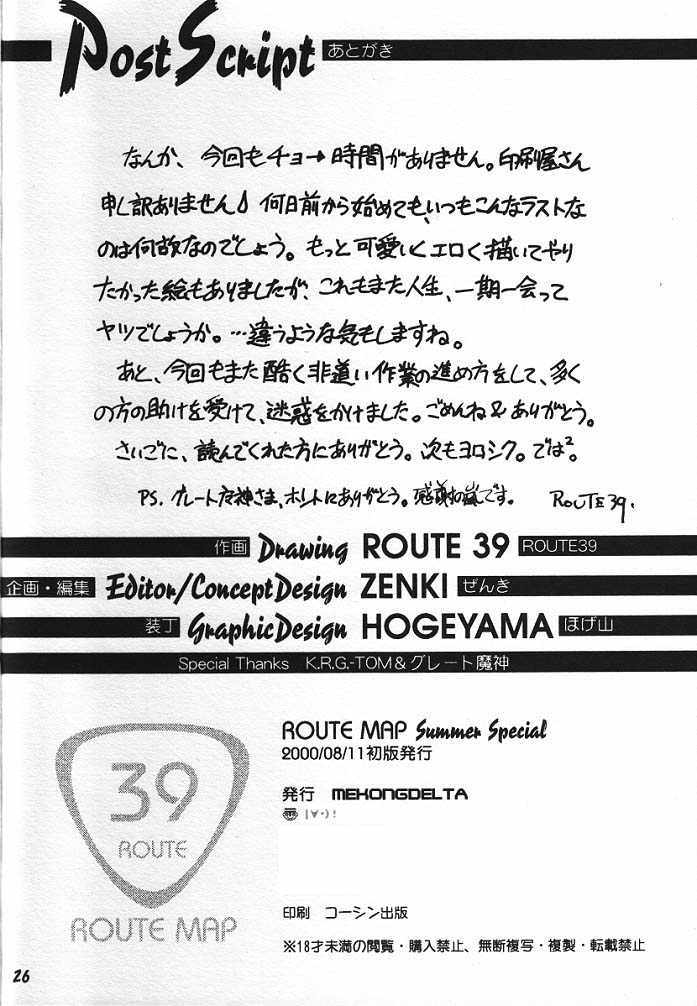 Post Script あとがき
なんか、今回もチョー時間がありません。印刷屋さん
申し訳ありません♪ 何日前から始めても、いつもこんなラストな
のは何故なのでしょう。もっと可愛いくエロく描いてやり
たかった絵もありましたが、これもまた人生、一期一会って
ヤツでしょうか。…違うような気もしますね。
あと、今回もまた酷く非道い作業の進め方をして、多く
の方の助けを受けて、迷惑をかけました。ごめんね&ありがとう。
さいごに、読んでくれた方にありがとう。次もヨロシク。では².
PS. グレート魔神さま、ホントにありがとう。感謝の嵐です。 ROUTE39.
作画 Drawing ROUTE 39 ROUTE39
企画・編集 Editor/Concept Design ZENKI ぜんき
装丁 Graphic Design HOGEYAMA ほげ山
Special Thanks K.R.G.-TOM&グレート魔神
39
ROUTE
ROUTE MAP
ROUTE MAP Summer Special
2000/08/11初版発行
発行 MEKONGDELTA
|∀・)!
印刷 コーシン出版
※18才未満の閲覧・購入禁止、無断複写・複製・転載禁止
26